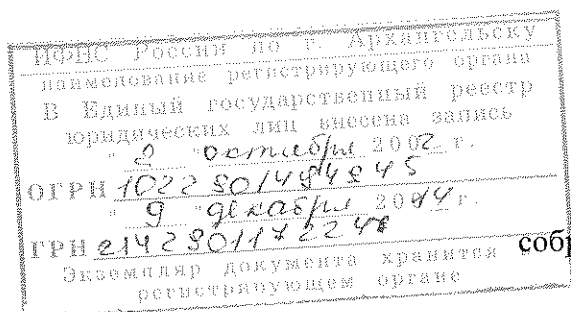 ИФНС России по г. Архангельску
наименование регистрирующего органа
В Единый государственный реестр
юридических лиц внесена запись
" " октября 2002 г.
ОГРН
" 9 " декабря 2014 г.
ГРН
Экземпляр документа хранится в
регистрирующем органе
собр